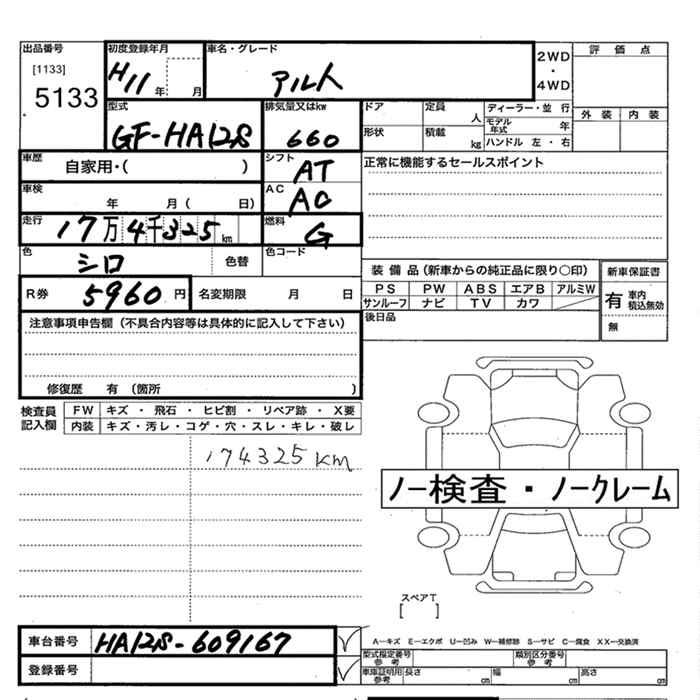 出品番号
[1133]
5133
初度登録年月
H11 年 月
車名・グレード
アルト
2WD
・
4WD
評価点
外装 内装
型式
GF-HA12S
排気量又はkw
660
ドア
定員
人
ディーラー・並行
形状
積載
kg
モデル年式
年
ハンドル 左・右
車歴
自家用・( )
シフト
AT
正常に機能するセールスポイント
車検
年 月( 日)
AC
AC
走行
17万4千325km
燃料
G
色
シロ
色替
色コード
R券
5960円
名変期限 月 日
装備品(新車からの純正品に限り○印)
新車保証書
PS PW ABS エアB アルミW
サンルーフ ナビ TV カワ
有 車内積込無効
無
後日品
注意事項申告欄(不具合内容等は具体的に記入して下さい)
修復歴 有(箇所 )
検査員記入欄
FW キズ・飛石・ヒビ割・リペア跡・X要
内装 キズ・汚レ・コゲ・穴・スレ・キレ・破レ
174325km
ノー検査・ノークレーム
スペアT
[ ]
車台番号
HA12S-609167
登録番号
A―キズ E―エクボ U―凹み W―補修跡 S―サビ C―腐食 XX―交換済
型式指定番号
参考
類別区分番号
参考
車庫証明用
参考
長さ cm 幅 cm 高さ cm